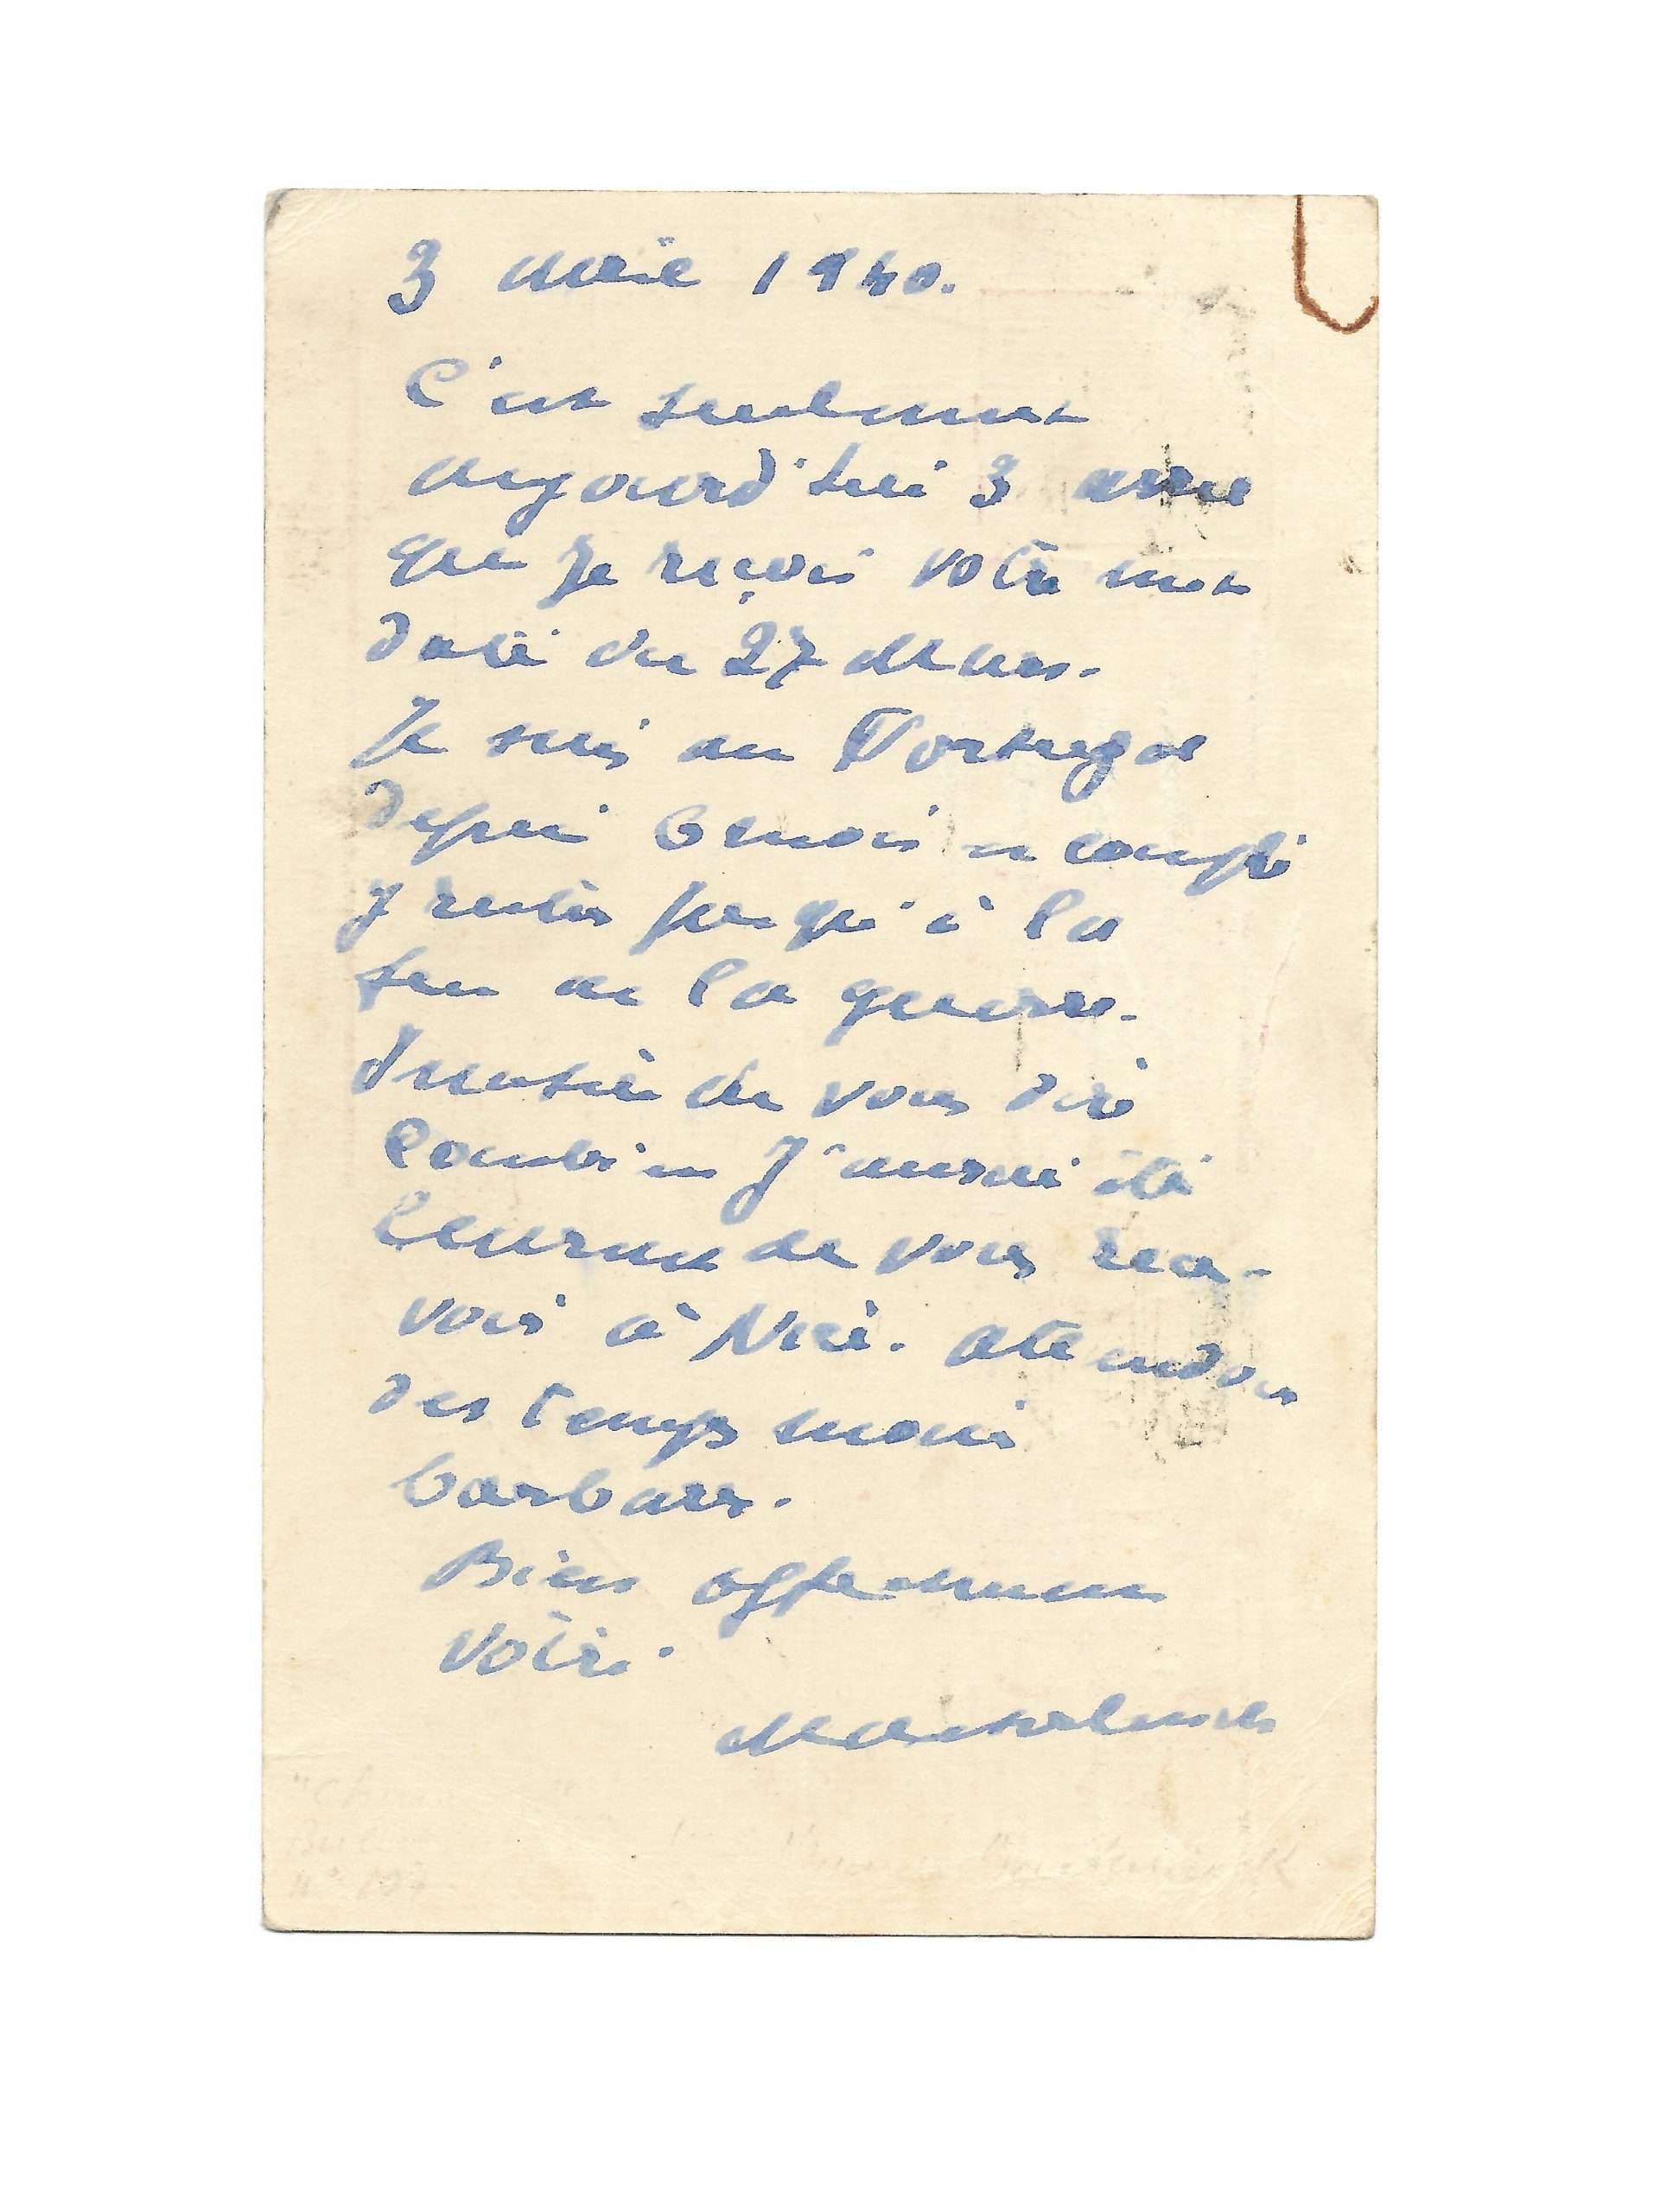 3 avril 1940.
C'est seulement
aujourd'hui 3 avril
que je reçois votre mot
daté du 27 Mars.
Je suis au Portugal
depuis 6 mois et compte
y rester jusqu'à la
fin de la guerre.
Inutile de vous dire
combien j'aurais été
heureux de vous rece-
voir à Nice. Attendons
des temps moins
barbares.
Bien affectueusement
vôtre.
Maeterlinck